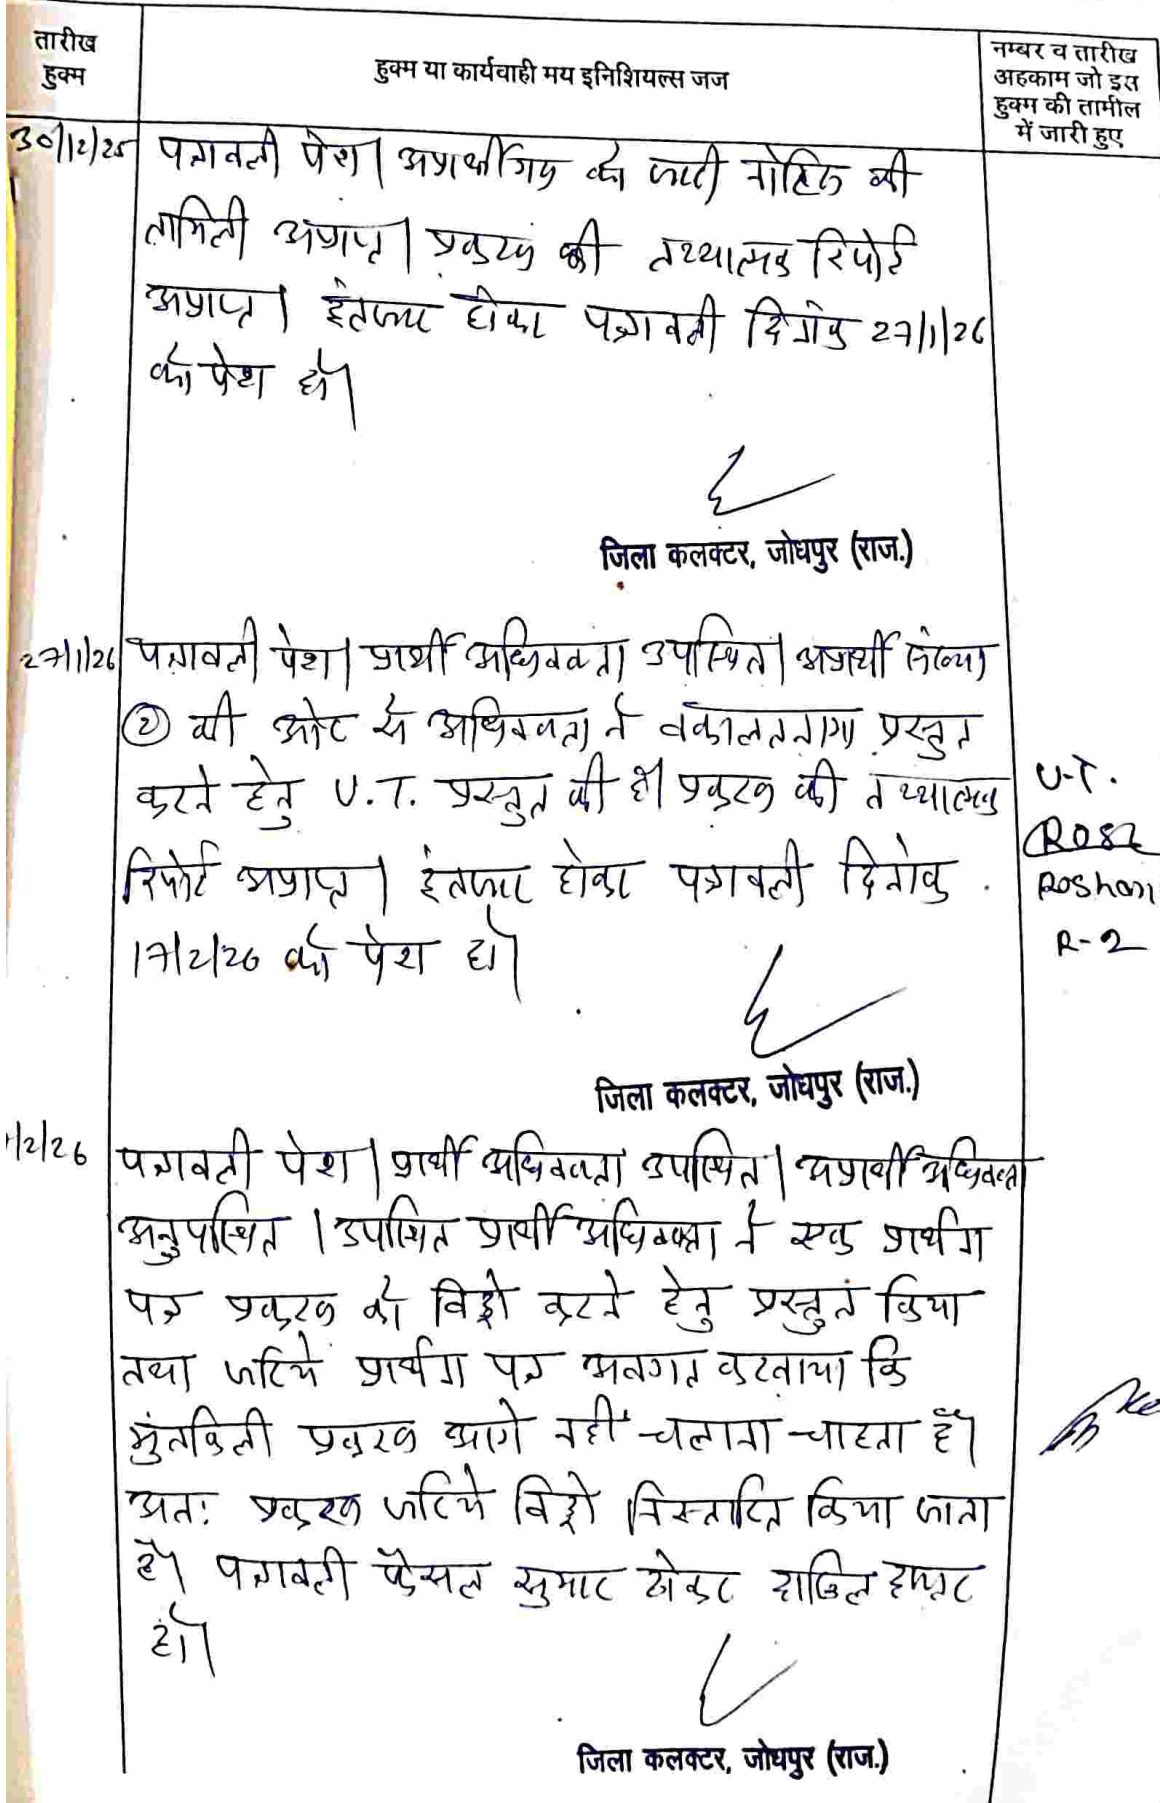 तारीख
हुक्म
हुक्म या कार्यवाही मय इनिशियल्स जज
नम्बर व तारीख
अहकाम जो इस
हुक्म की तामील
में जारी हुए
30/12/25
पत्रावली पेश। अप्रार्थीगण को जारी नोटिस की
तामिली अप्राप्त। प्रकरण की तथ्यात्मक रिपोर्ट
अप्राप्त। इंतजार होकर पत्रावली दिनांक 27/1/26
को पेश हो।
जिला कलक्टर, जोधपुर (राज.)
27/1/26
पत्रावली पेश। प्रार्थी अधिवक्ता उपस्थित। अप्रार्थी संख्या
② की ओर से अधिवक्ता ने वकालतनामा प्रस्तुत
करने हेतु U.T. प्रस्तुत की है। प्रकरण की तथ्यात्मक
रिपोर्ट अप्राप्त। इंतजार होकर पत्रावली दिनांक
17/2/26 को पेश हो।
U.T.
Roshan
R-2
जिला कलक्टर, जोधपुर (राज.)
/2/26
पत्रावली पेश। प्रार्थी अधिवक्ता उपस्थित। अप्रार्थी अधिवक्ता
अनुपस्थित। उपस्थित प्रार्थी अधिवक्ता ने एक प्रार्थना
पत्र प्रकरण को विड्रो करने हेतु प्रस्तुत किया
तथा जरिये प्रार्थना पत्र अवगत करवाया कि
मुंतकिली प्रकरण आगे नहीं चलाना चाहता है।
अतः प्रकरण जरिये विड्रो निस्तारित किया जाता
है। पत्रावली फैसल सुमार होकर दाखिल दफ्तर
हो।
जिला कलक्टर, जोधपुर (राज.)